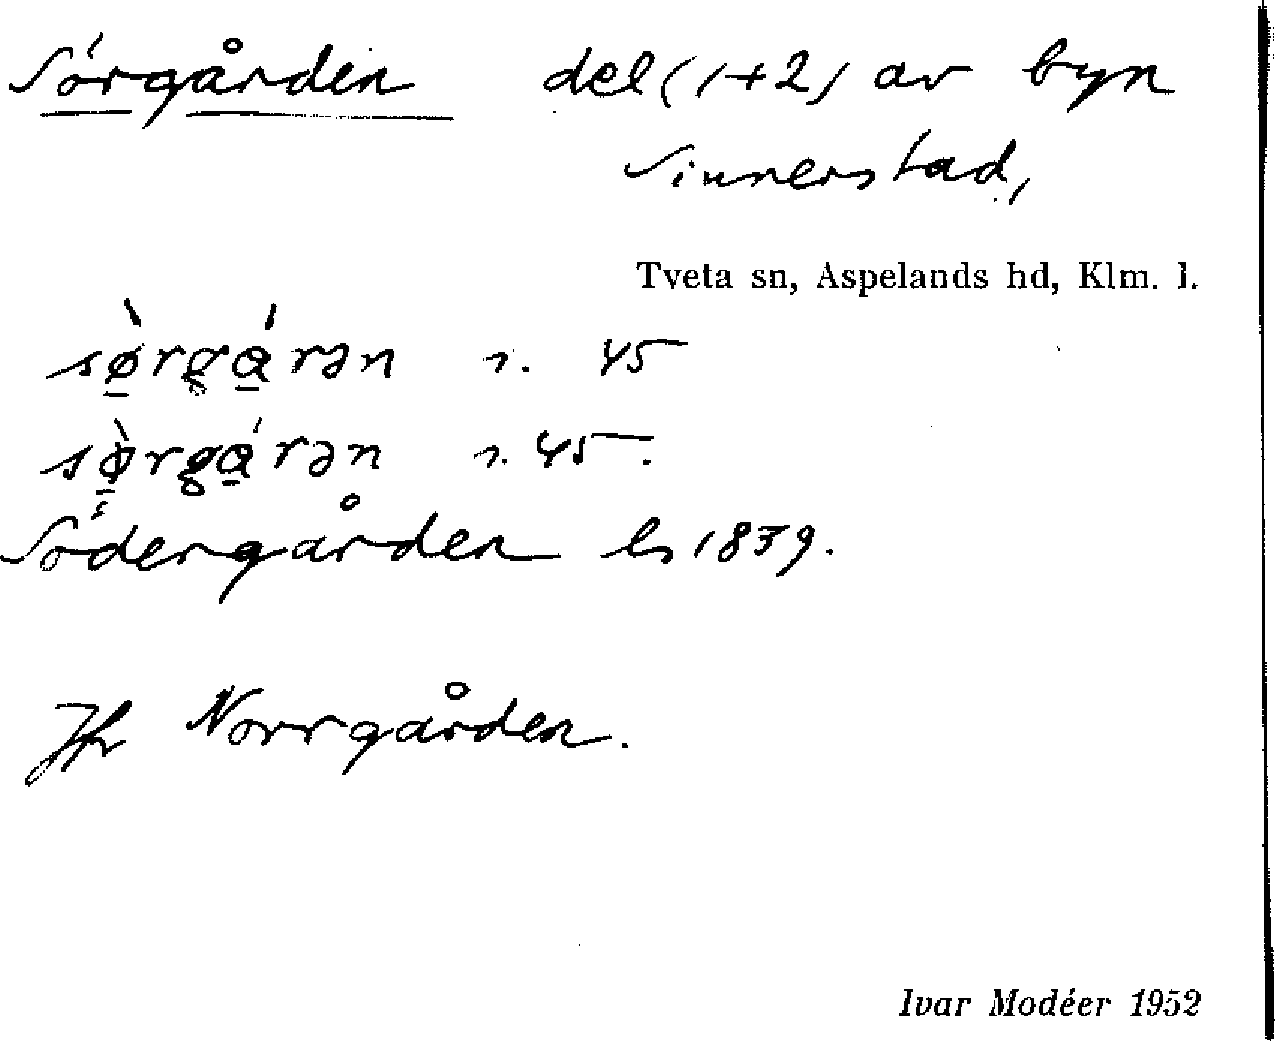 Sörgården del (1+2) av byn
Sinnerstad,
Tveta sn, Aspelands hd, Klm. l.
sø̀rgárən 45
sø̀rgárən 45.
Södergården 1839.
Jfr Norrgården.
Ivar Modéer 1952